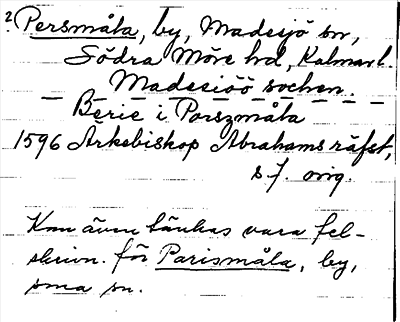 ? Persmåla, by, Madesjö sn,
Södra Möre hd, Kalmar l.
Madesiöö sochen.
Berie i Porszmåla
1596 Arkebiskop Abrahams räfst,
s. 7. orig.
Kan även tänkas vara fel-
skrivn. för Parismåla, by,
sma sn.